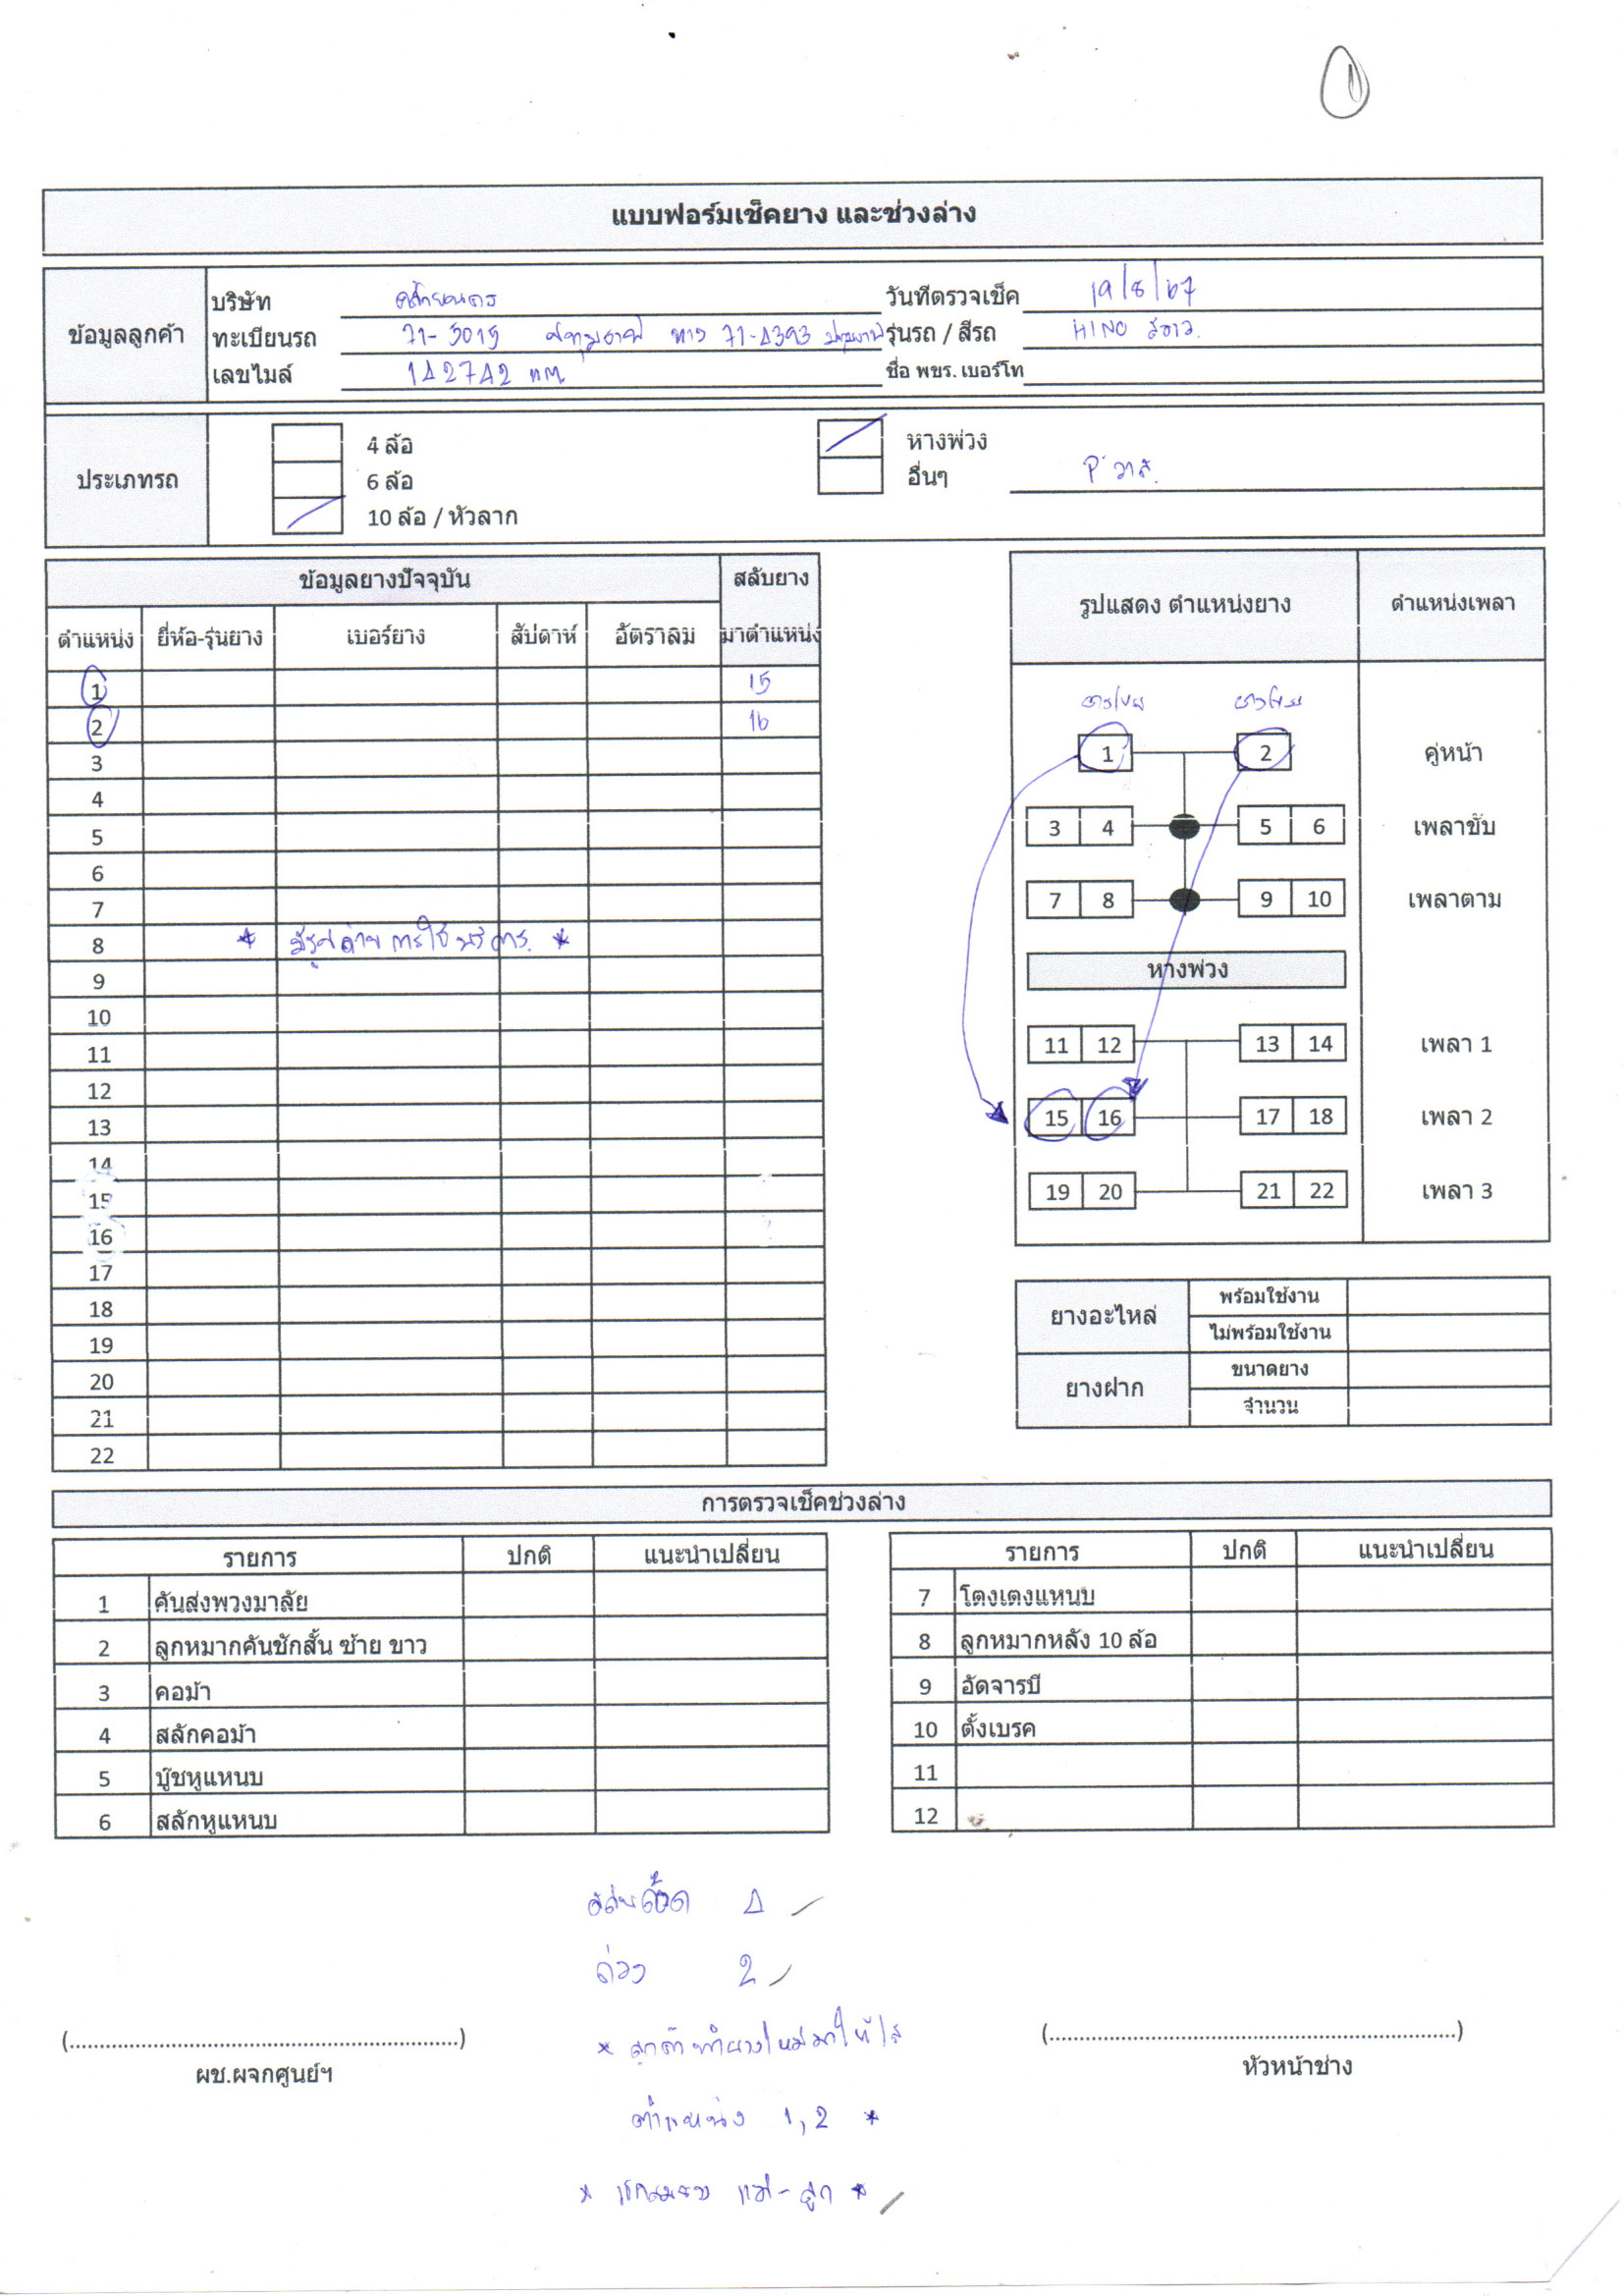 แบบฟอร์มเช็คยาง และช่วงล่าง
ข้อมูลลูกค้า
บริษัท
วันที่ตรวจเช็ค 19/8/67
ทะเบียนรถ 71-5015 ปทุมธานี หาง 71-4393 ปทุมธานี
รุ่นรถ / สีรถ HINO สีขาว
เลขไมล์ 142742 กม.
ชื่อ พขร. เบอร์โท
ประเภทรถ
4 ล้อ
6 ล้อ
10 ล้อ / หัวลาก
หางพ่วง
อื่นๆ
ข้อมูลยางปัจจุบัน สลับยาง
ตำแหน่ง ยี่ห้อ-รุ่นยาง เบอร์ยาง สัปดาห์ อัตราลม มาตำแหน่ง
1 15
2 16
3
4
5
6
7
8 * มีรูปถ่ายการใช้บริการ *
9
10
11
12
13
14
15
16
17
18
19
20
21
22
รูปแสดง ตำแหน่งยาง ตำแหน่งเพลา
ยางใหม่ ยางใหม่
1 2 คู่หน้า
3 4 5 6 เพลาขับ
7 8 9 10 เพลาตาม
หางพ่วง
11 12 13 14 เพลา 1
15 16 17 18 เพลา 2
19 20 21 22 เพลา 3
ยางอะไหล่
พร้อมใช้งาน
ไม่พร้อมใช้งาน
ยางฝาก
ขนาดยาง
จำนวน
การตรวจเช็คช่วงล่าง
รายการ ปกติ แนะนำเปลี่ยน
1 คันส่งพวงมาลัย
2 ลูกหมากคันชักสั้น ซ้าย ขาว
3 คอม้า
4 สลักคอม้า
5 บู๊ชหูแหนบ
6 สลักหูแหนบ
รายการ ปกติ แนะนำเปลี่ยน
7 โตงเตงแหนบ
8 ลูกหมากหลัง 10 ล้อ
9 อัดจารบี
10 ตั้งเบรค
11
12
4
ถ่วง 2
* ลูกค้านำยางใหม่มาให้ใส่
ตำแหน่ง 1,2 *
* เช็คลมยาง แม่-ลูก *
(................................................................)
ผช.ผจกศูนย์ฯ
(................................................................)
หัวหน้าช่าง